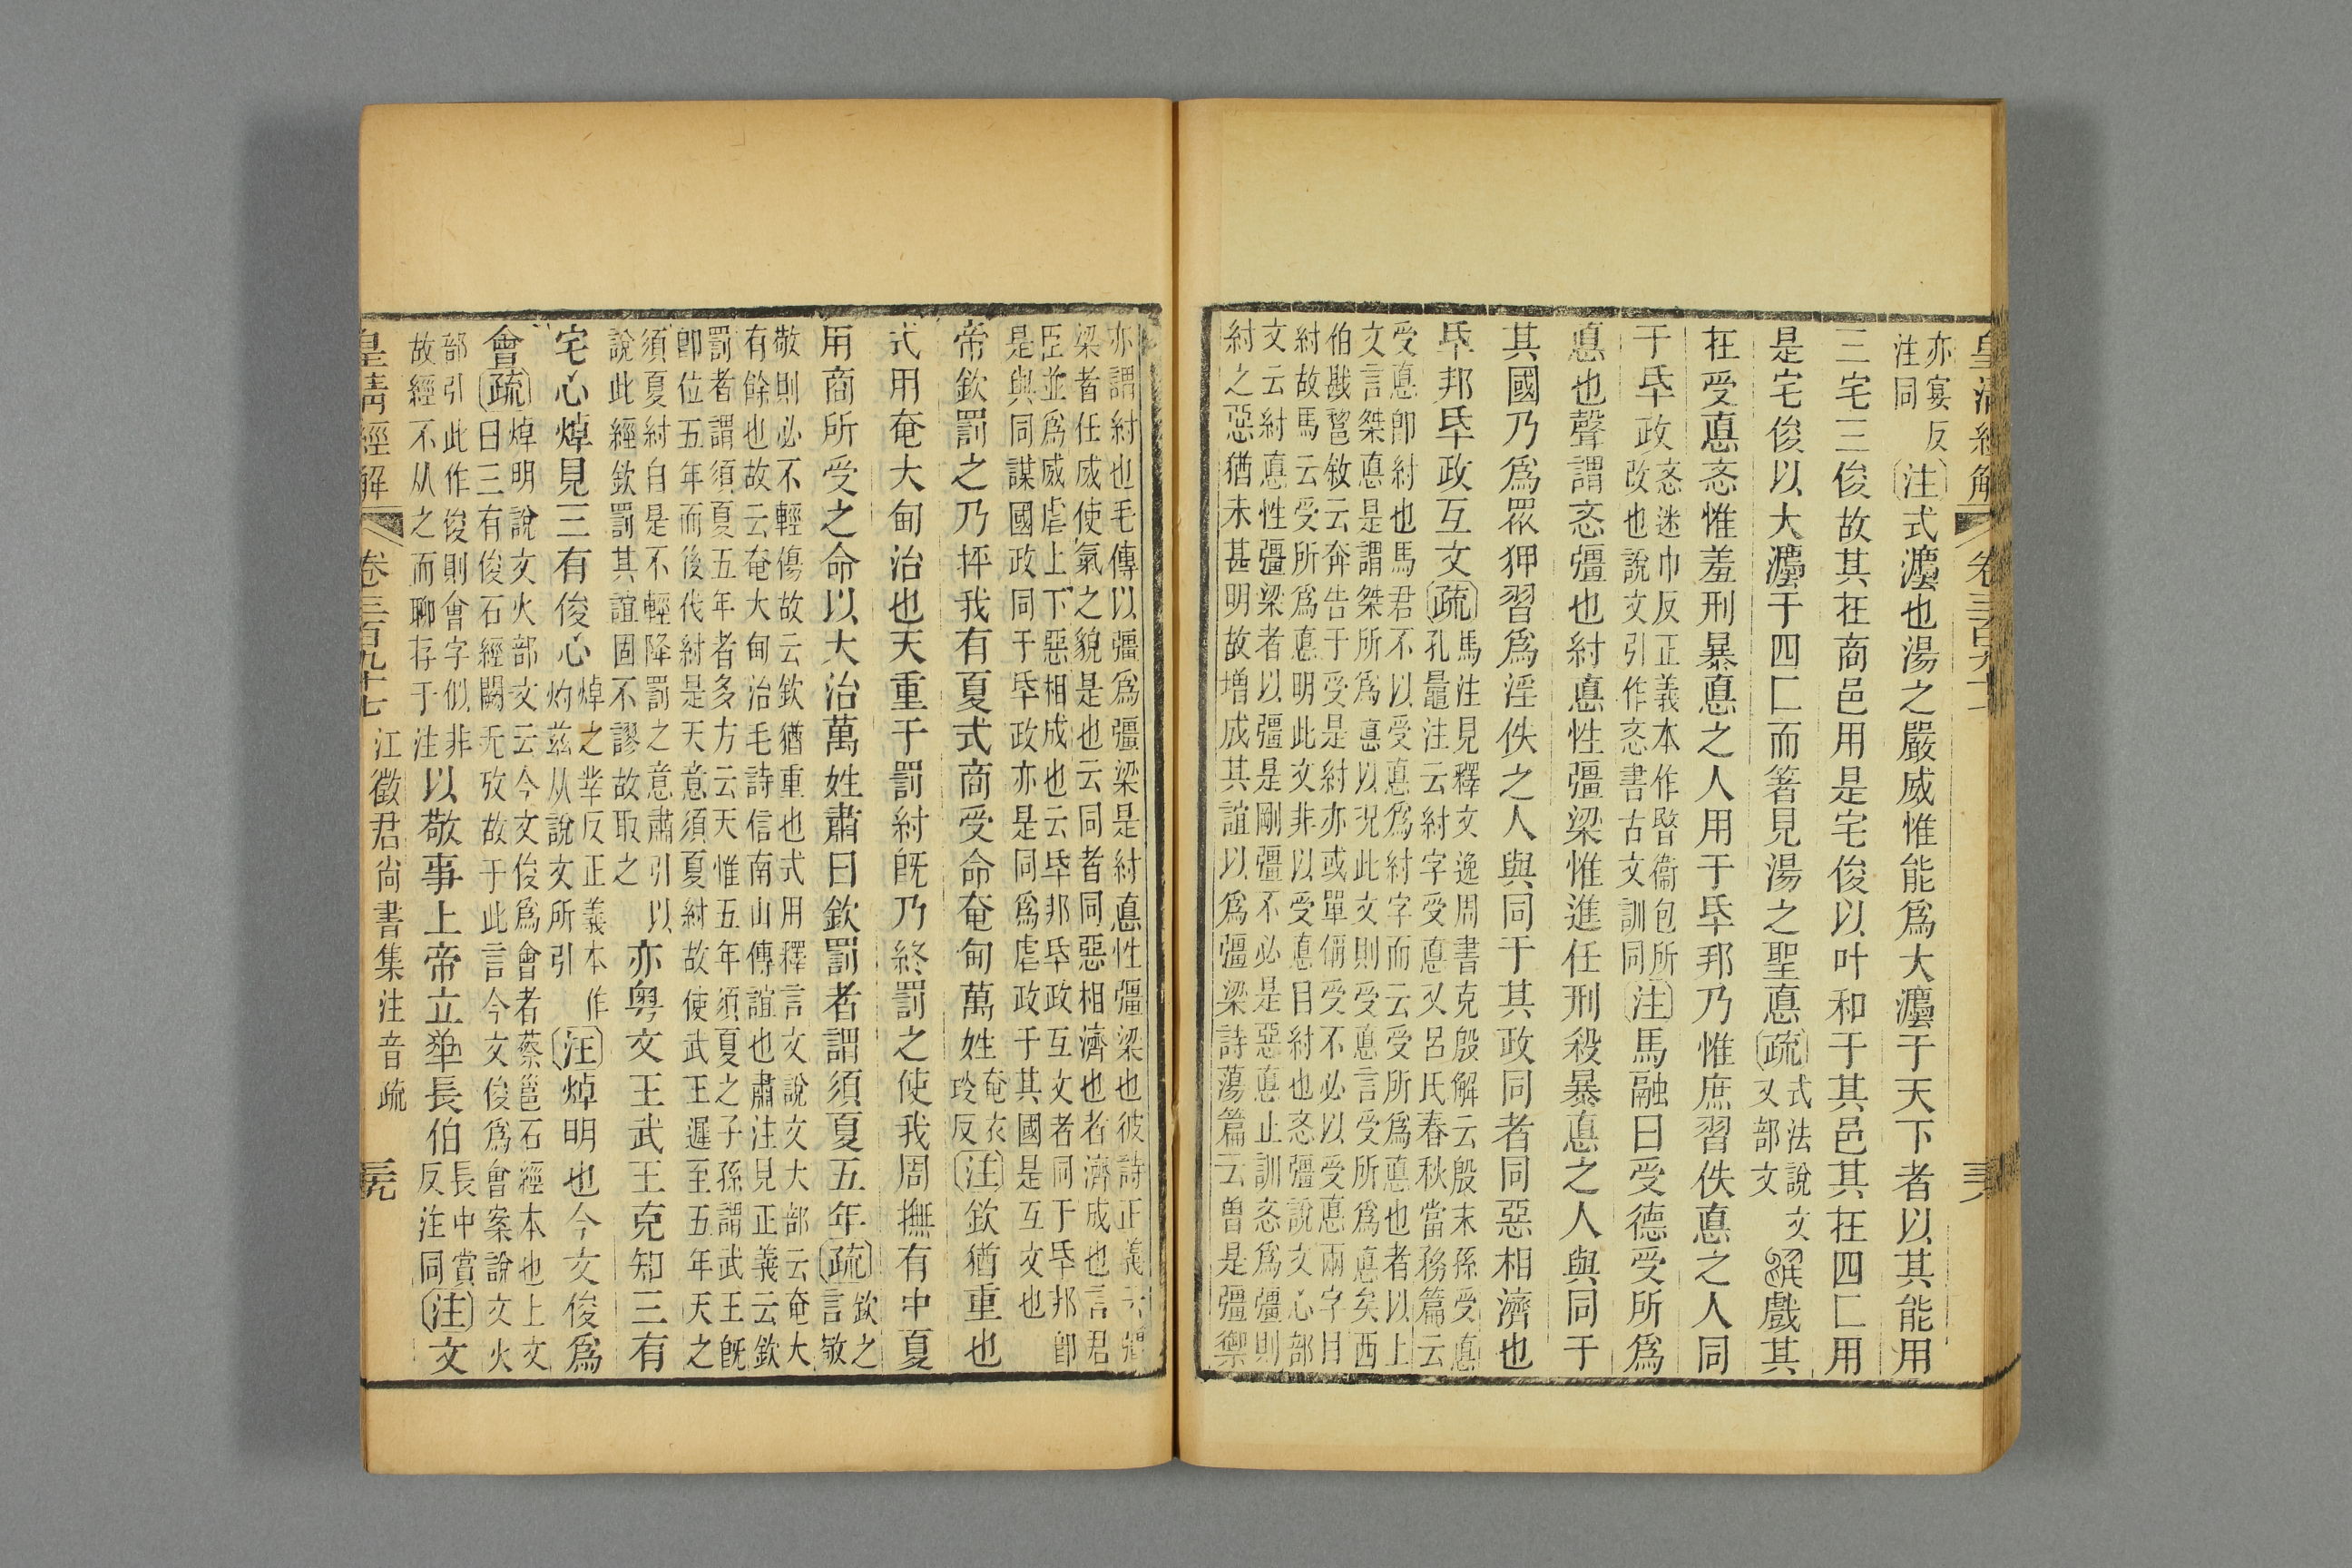 皇清經解 卷三百九十七
亦宴反
注同
注式灋也湯之嚴威惟能爲大灋于天下者以其能用
三宅三俊故其在商邑用是宅俊以叶和于其邑其在四匚用
是宅俊以大灋于四匚而箸見湯之聖悳疏
式法說文
又部文
戲其
在受悳忞惟羞刑暴悳之人用于氒邦乃惟庶習佚悳之人同
于氒政
忞迷巾反正義本作暋衞包所
改也說文引作忞書古文訓同
注馬融曰受德受所爲
悳也聲謂忞彊也紂悳性彊梁惟進任刑殺暴悳之人與同于
其國乃爲眾狎習爲淫佚之人與同于其政同者同惡相濟也
氒邦氒政互文疏
馬注見釋文逸周書克殷解云殷末孫受悳
孔鼂注云紂字受悳又呂氏春秋當務篇云
受悳卽紂也馬君不以受悳爲紂字而云受所爲悳也者以上
文言桀悳是謂桀所爲悳以況此文則受悳言受所爲悳矣西
伯戡𨛫敘云奔告于受是紂亦或單偁受不必以受悳兩字目
紂故馬云受所爲悳明此文非以受悳目紂也忞彊說文心部
文云紂悳性彊梁者以彊是剛彊不必是惡悳止訓忞爲彊則
紂之惡猶未甚明故增成其誼以爲彊梁詩蕩篇云曾是彊禦
亦謂紂也毛傳以彊爲彊梁是紂悳性彊梁也彼詩正義云彊
梁者任威使氣之貌是也云同者同惡相濟也者濟成也言君
臣並爲威虐上下惡相成也云氒邦氒政互文者同于氒邦卽
是與同謀國政同于氒政亦是同爲虐政于其國是互文也
帝欽罰之乃抨我有夏式商受命奄甸萬姓
奄衣
玪反
注欽猶重也
式用奄大甸治也天重于罰紂旣乃終罰之使我周撫有中夏
用商所受之命以大治萬姓肅曰欽罰者謂須夏五年疏
欽之
言敬
敬則必不輕傷故云欽猶重也式用釋言文說文大部云奄大
有餘也故云奄大甸治毛詩信南山傳誼也肅注見正義云欽
罰者謂須夏五年者多方云天惟五年須夏之子孫謂武王旣
卽位五年而後伐紂是天意須夏紂故使武王遲至五年天之
須夏紂自是不輕降罰之意肅引以
說此經欽罰其誼固不謬故取之
亦粤文王武王克知三有
宅心焯見三有俊心
焯之犖反正義本作
灼茲从說文所引
注焯明也今文俊爲
會疏
焯明說文火部文云今文俊爲會者蔡邕石經本也上文
曰三有俊石經闕无攷故于此言今文俊爲會案說文火
部引此作俊則會字似非
故經不从之而聊存于注
以敬事上帝立𡴂長伯
長中賞
反注同
注文
皇清經解 卷三百九十七 江徵君尚書集注音疏 三九